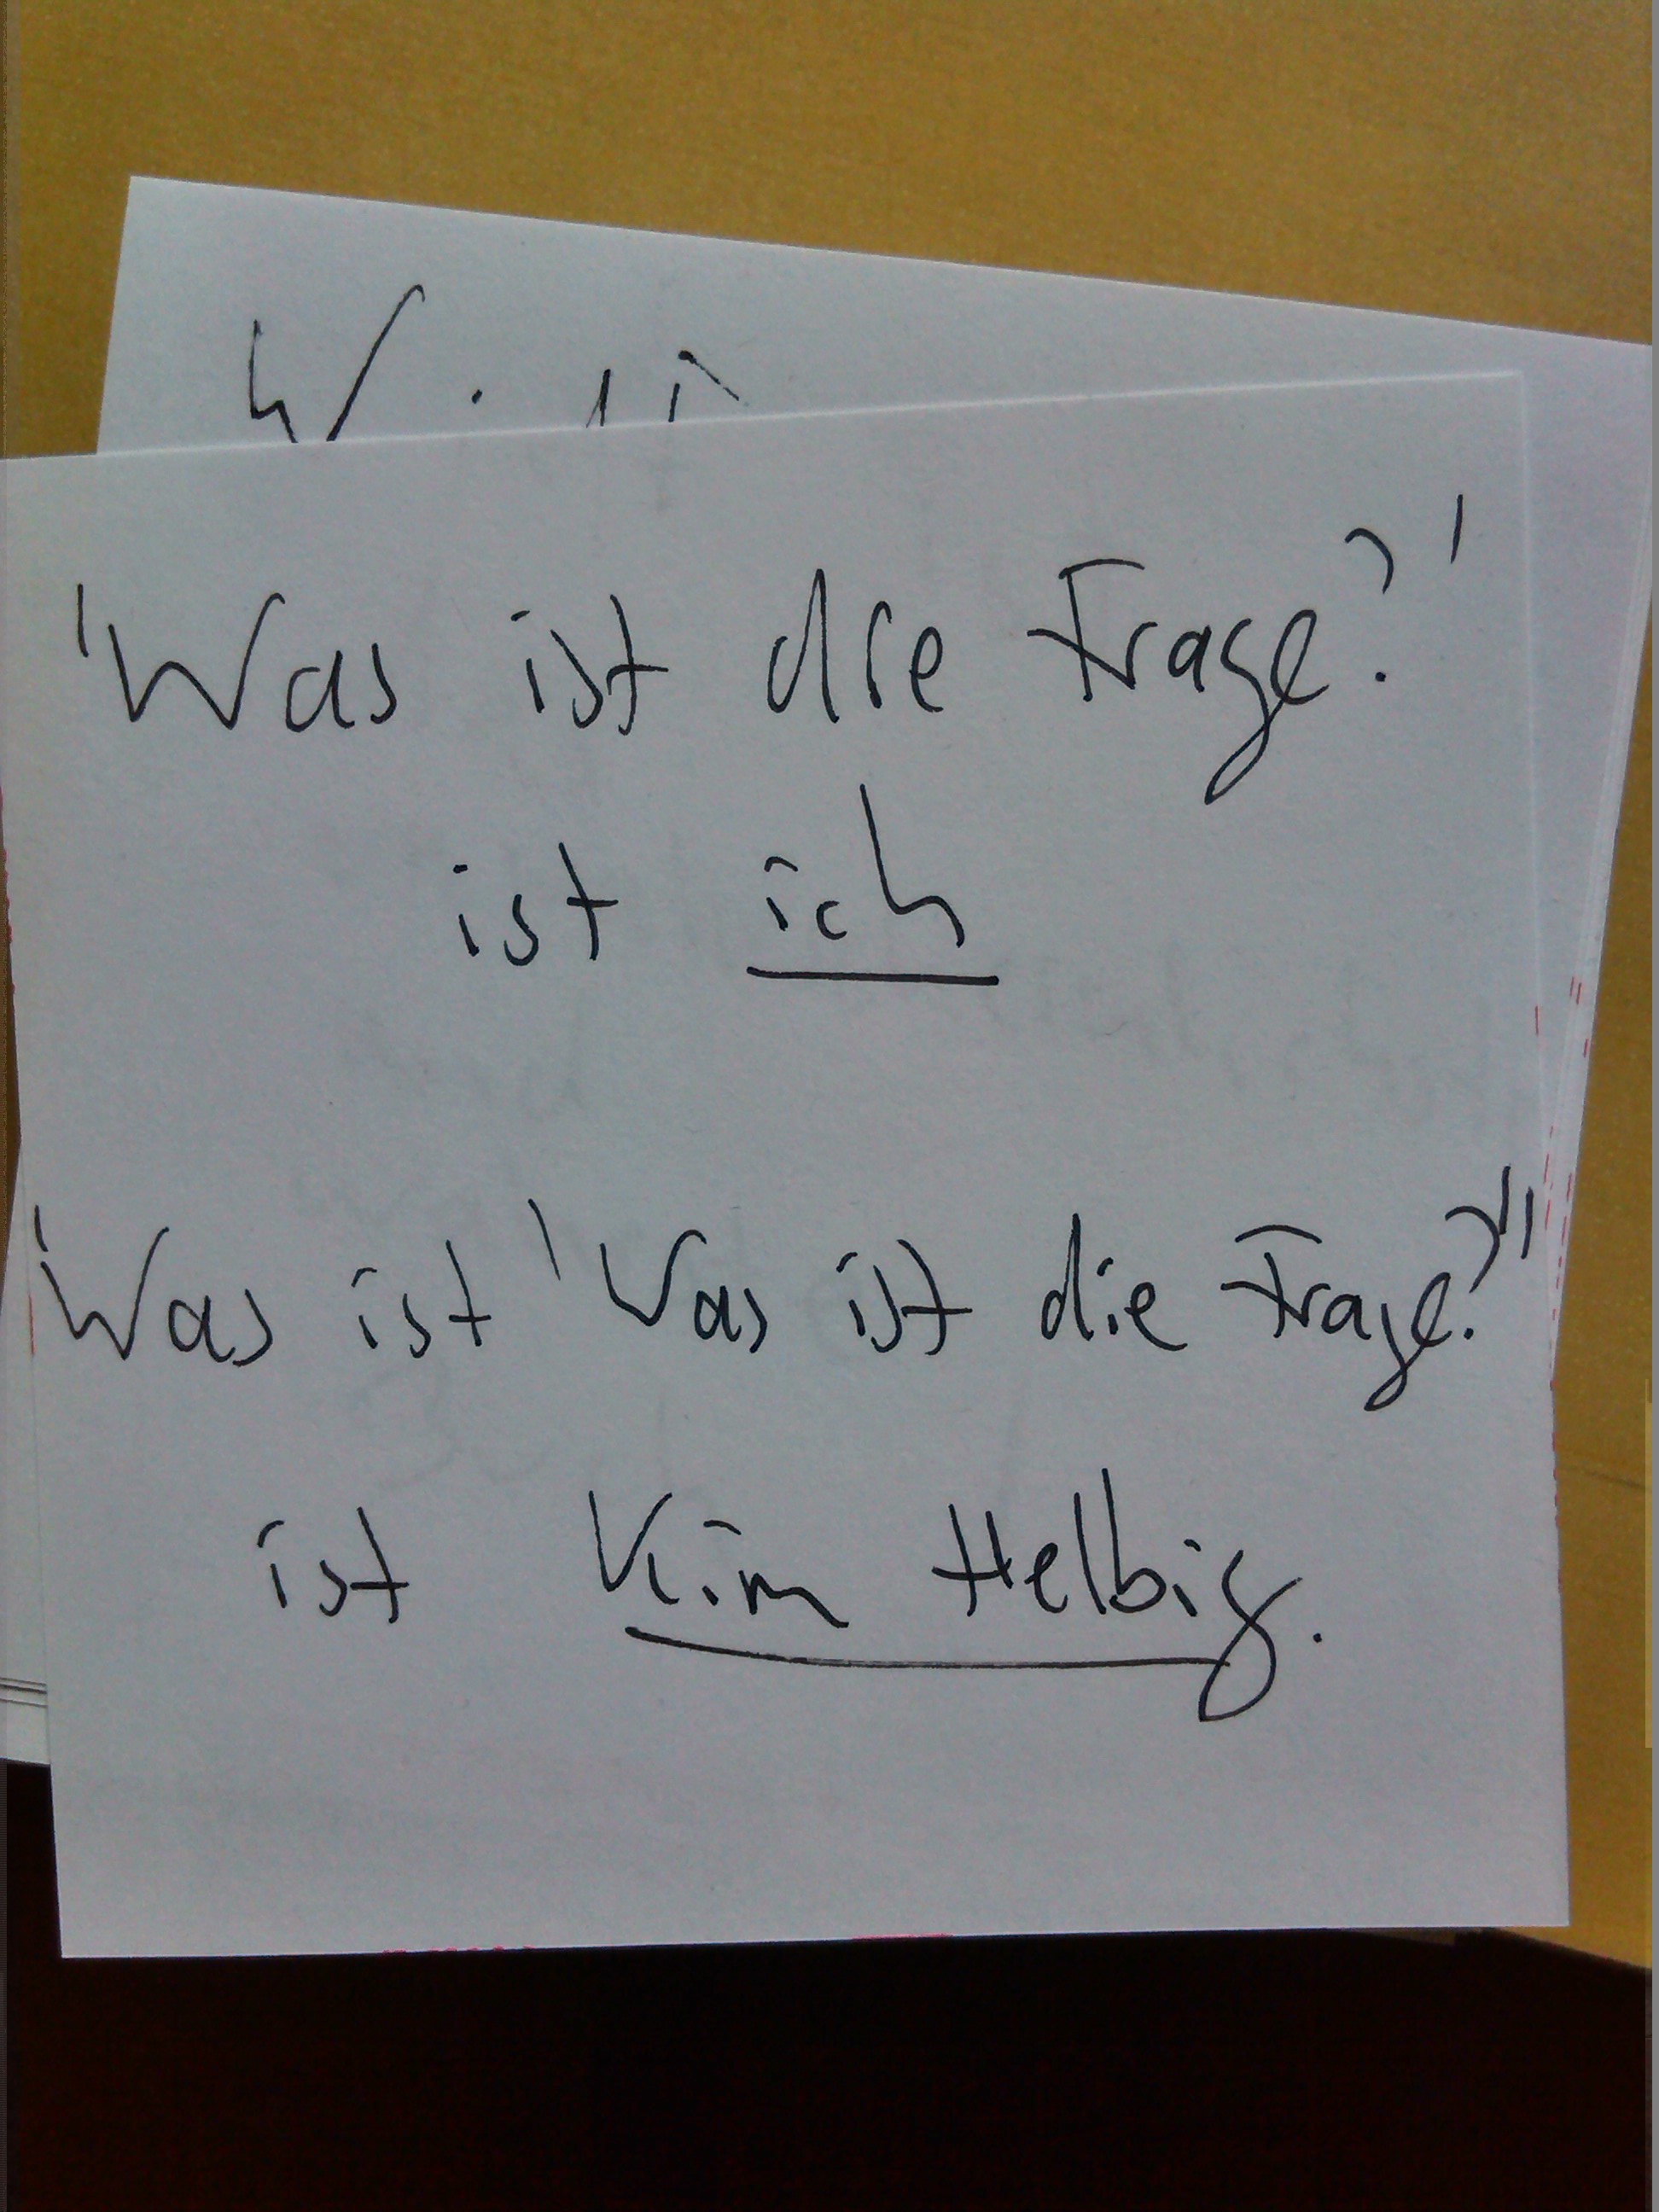 'Was ist die Frage?'
ist ich
'Was ist 'Was ist die Frage?''
ist Kim Helbig.